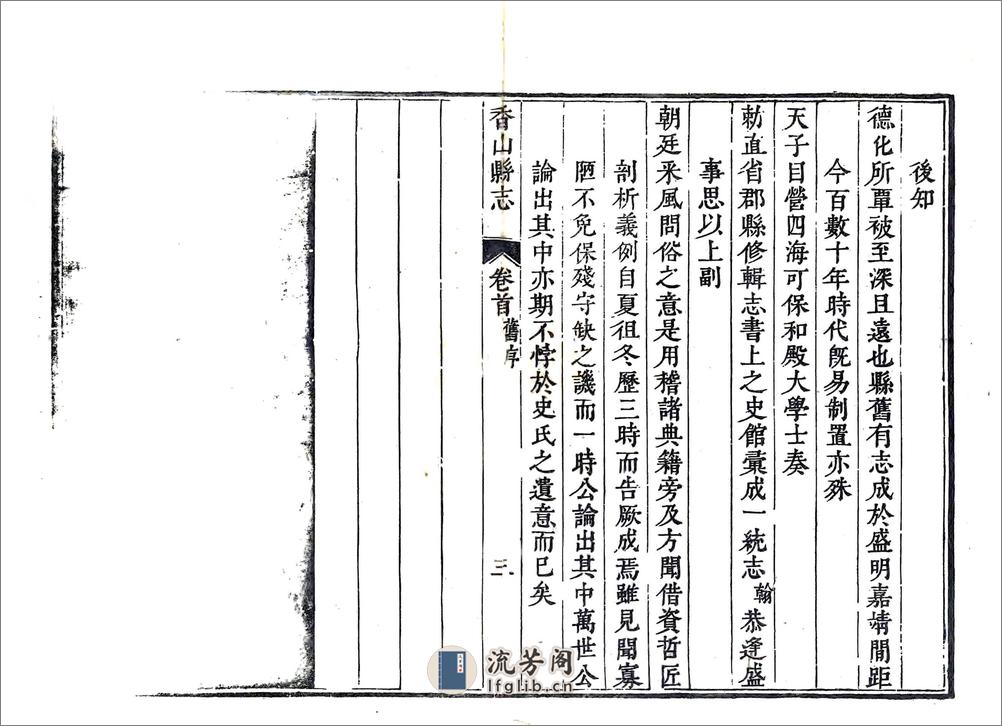 後知
德化所覃被至深且遠也縣舊有志成於盛明嘉靖間距
今百數十年時代旣易制置亦殊
天子目營四海可保和殿大學士奏
勅直省郡縣修輯志書上之史館彙成一統志翰恭逢盛
事思以上副
朝廷釆風問俗之意是用稽諸典籍旁及方聞借資哲匠
剖析義例自夏徂冬歷三時而告厥成焉雖見聞寡
陋不免保殘守缺之譏而一時公論出其中萬世公
論出其中亦期不悖於史氏之遺意而已矣
香山縣志 卷首 舊序 三
流芳阁
lfglib.cn